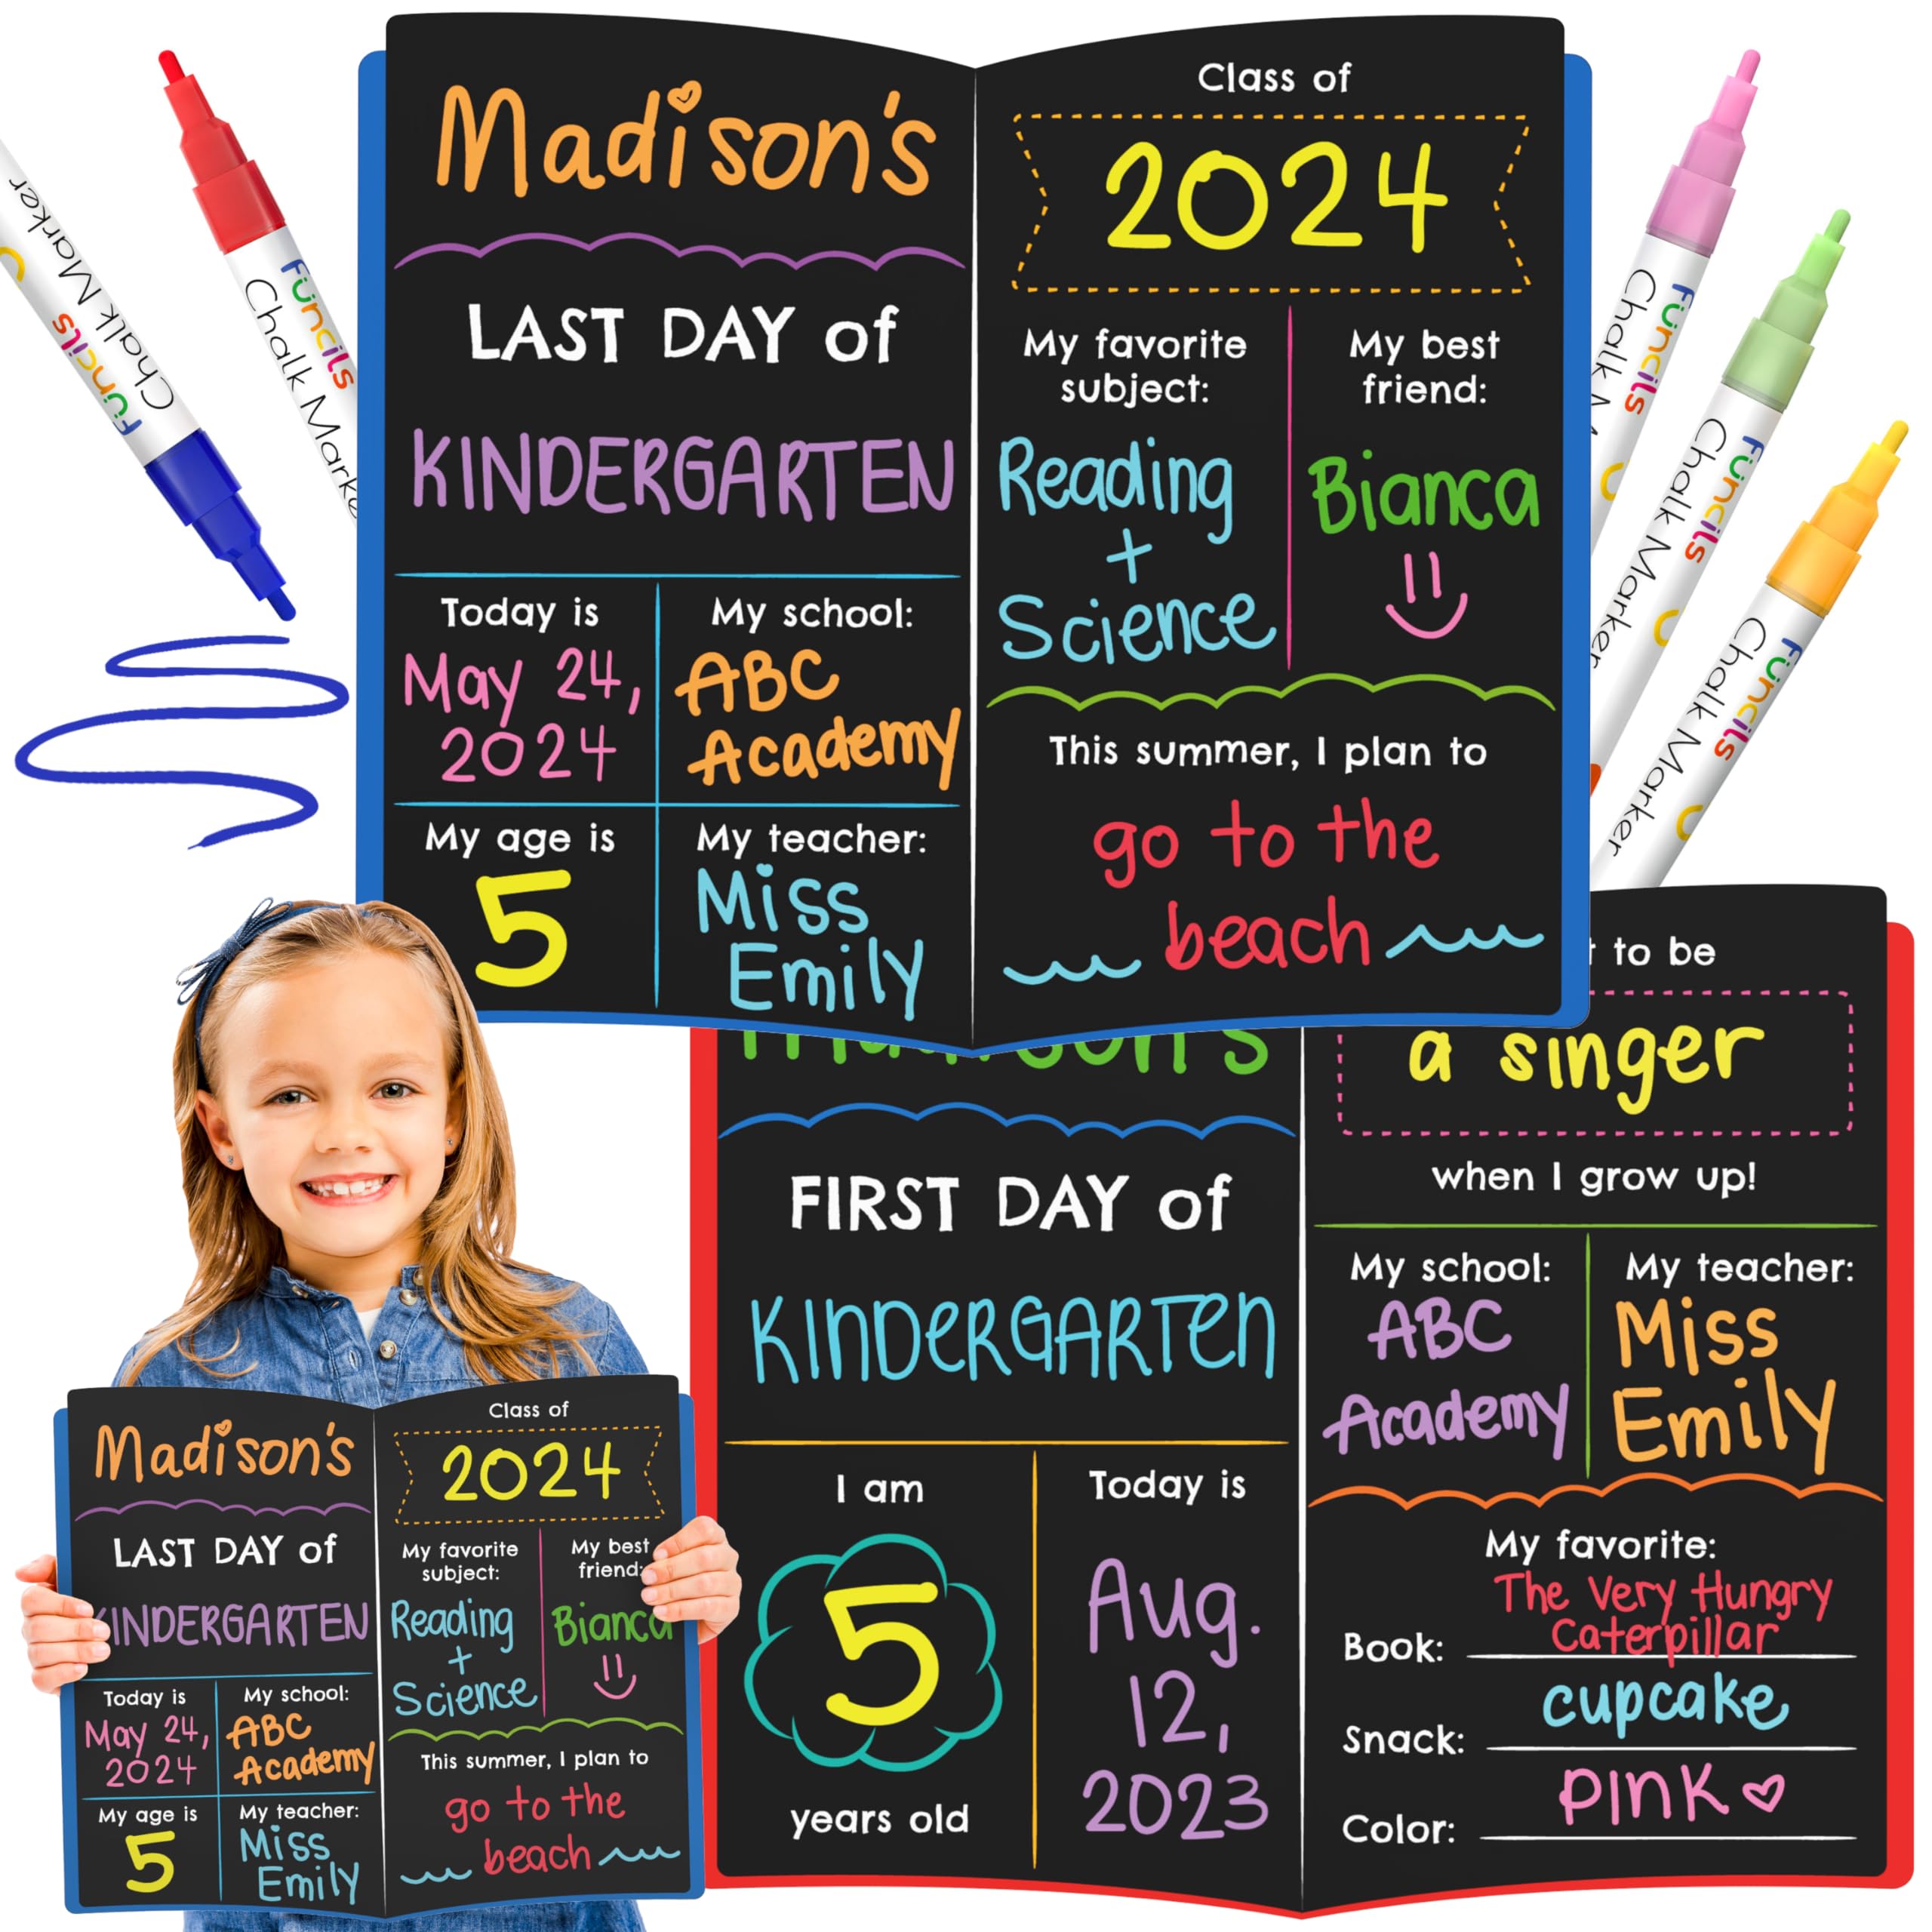 Madison's
LAST DAY of
KINDERGARTEN
Today is
May 24,
2024
My school:
ABC
Academy
My age is
5
My teacher:
Miss
Emily
Class of
2024
My favorite
subject:
Reading
+
Science
My best
friend:
Bianca
This summer, I plan to
go to the
beach
Füncils
Chalk Marker
Füncils
Chalk Marke
Füncils
Chalk
Füncils
Chalk Marker
Füncils
Chalk Marker
Madison's
LAST DAY of
KINDERGARTEN
Today is
May 24,
2024
My school:
ABC
Academy
My age is
5
My teacher:
Miss
Emily
Class of
2024
My favorite
subject:
Reading
+
Science
My best
friend:
Bianca
This summer, I plan to
go to the
beach
FIRST DAY of
KINDERGARTEN
I am
5
years old
Today is
Aug.
12,
2023
to be
a singer
when I grow up!
My school:
ABC
Academy
My teacher:
Miss
Emily
My favorite:
The Very Hungry
Caterpillar
Book:
cupcake
Snack:
PINK
Color: